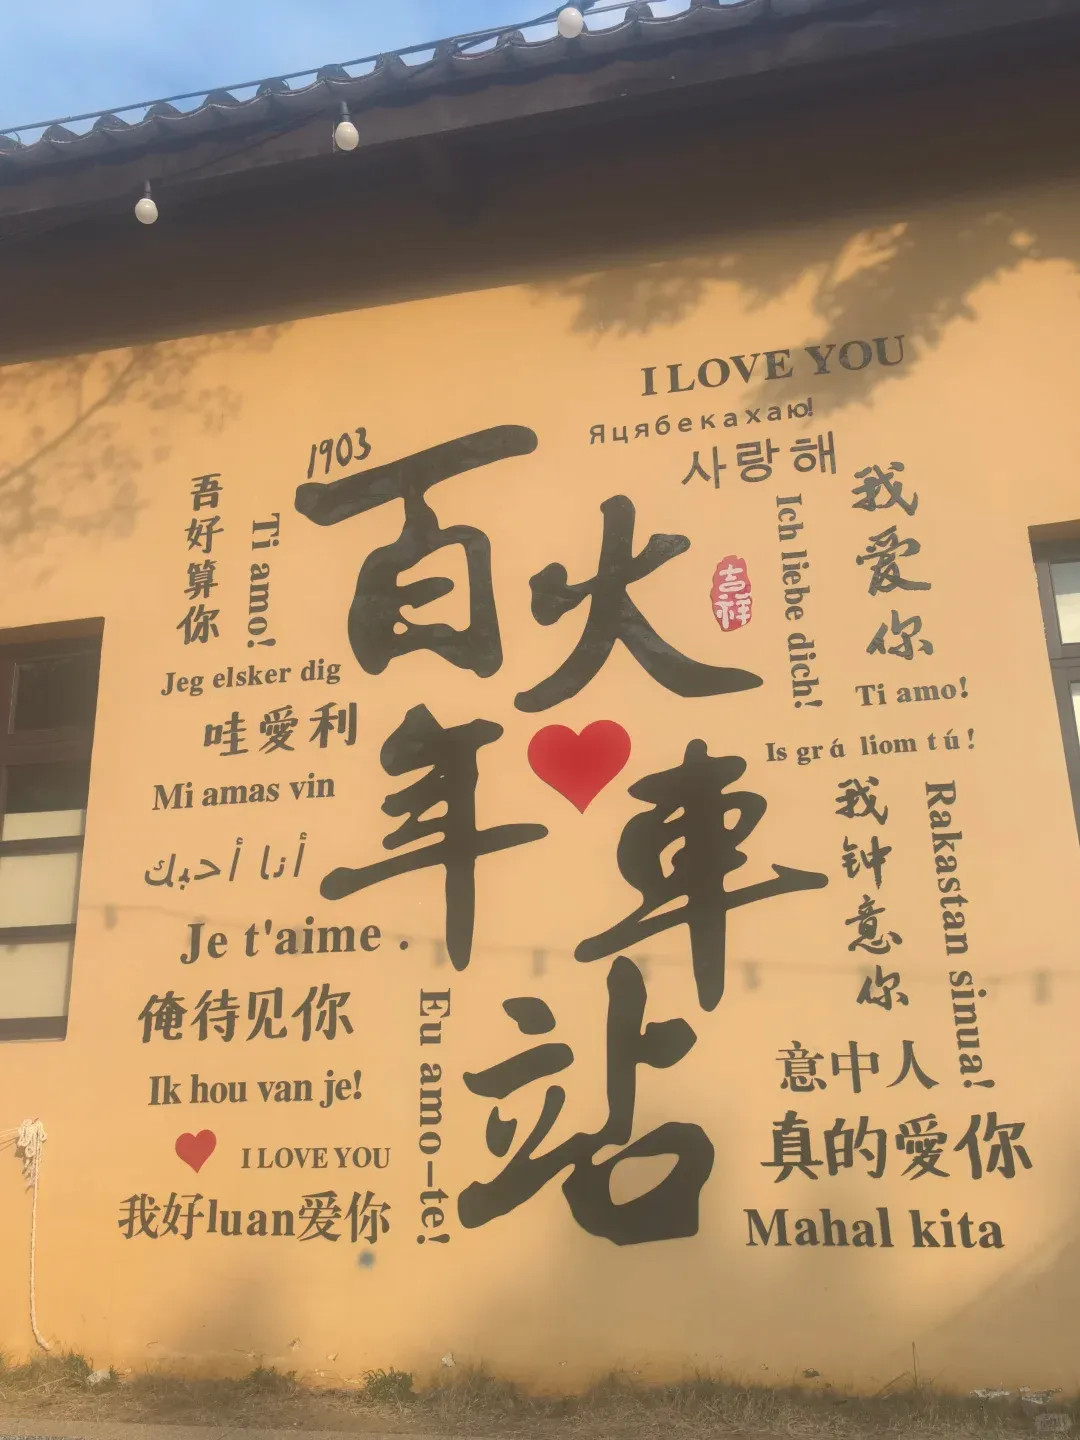 I LOVE YOU
Яцябекахаю!
사랑해
1903
百年
火車站
吉祥
吾好算你
Ti amo!
Jeg elsker dig
哇愛利
Mi amas vin
أنا أحبك
Je t'aime .
俺待见你
Ik hou van je!
I LOVE YOU
我好luan爱你
Eu amo-te!
Ich liebe dich!
我爱你
Ti amo!
Is grá liom tú!
我钟意你
Rakastan sinua!
意中人
真的愛你
Mahal kita